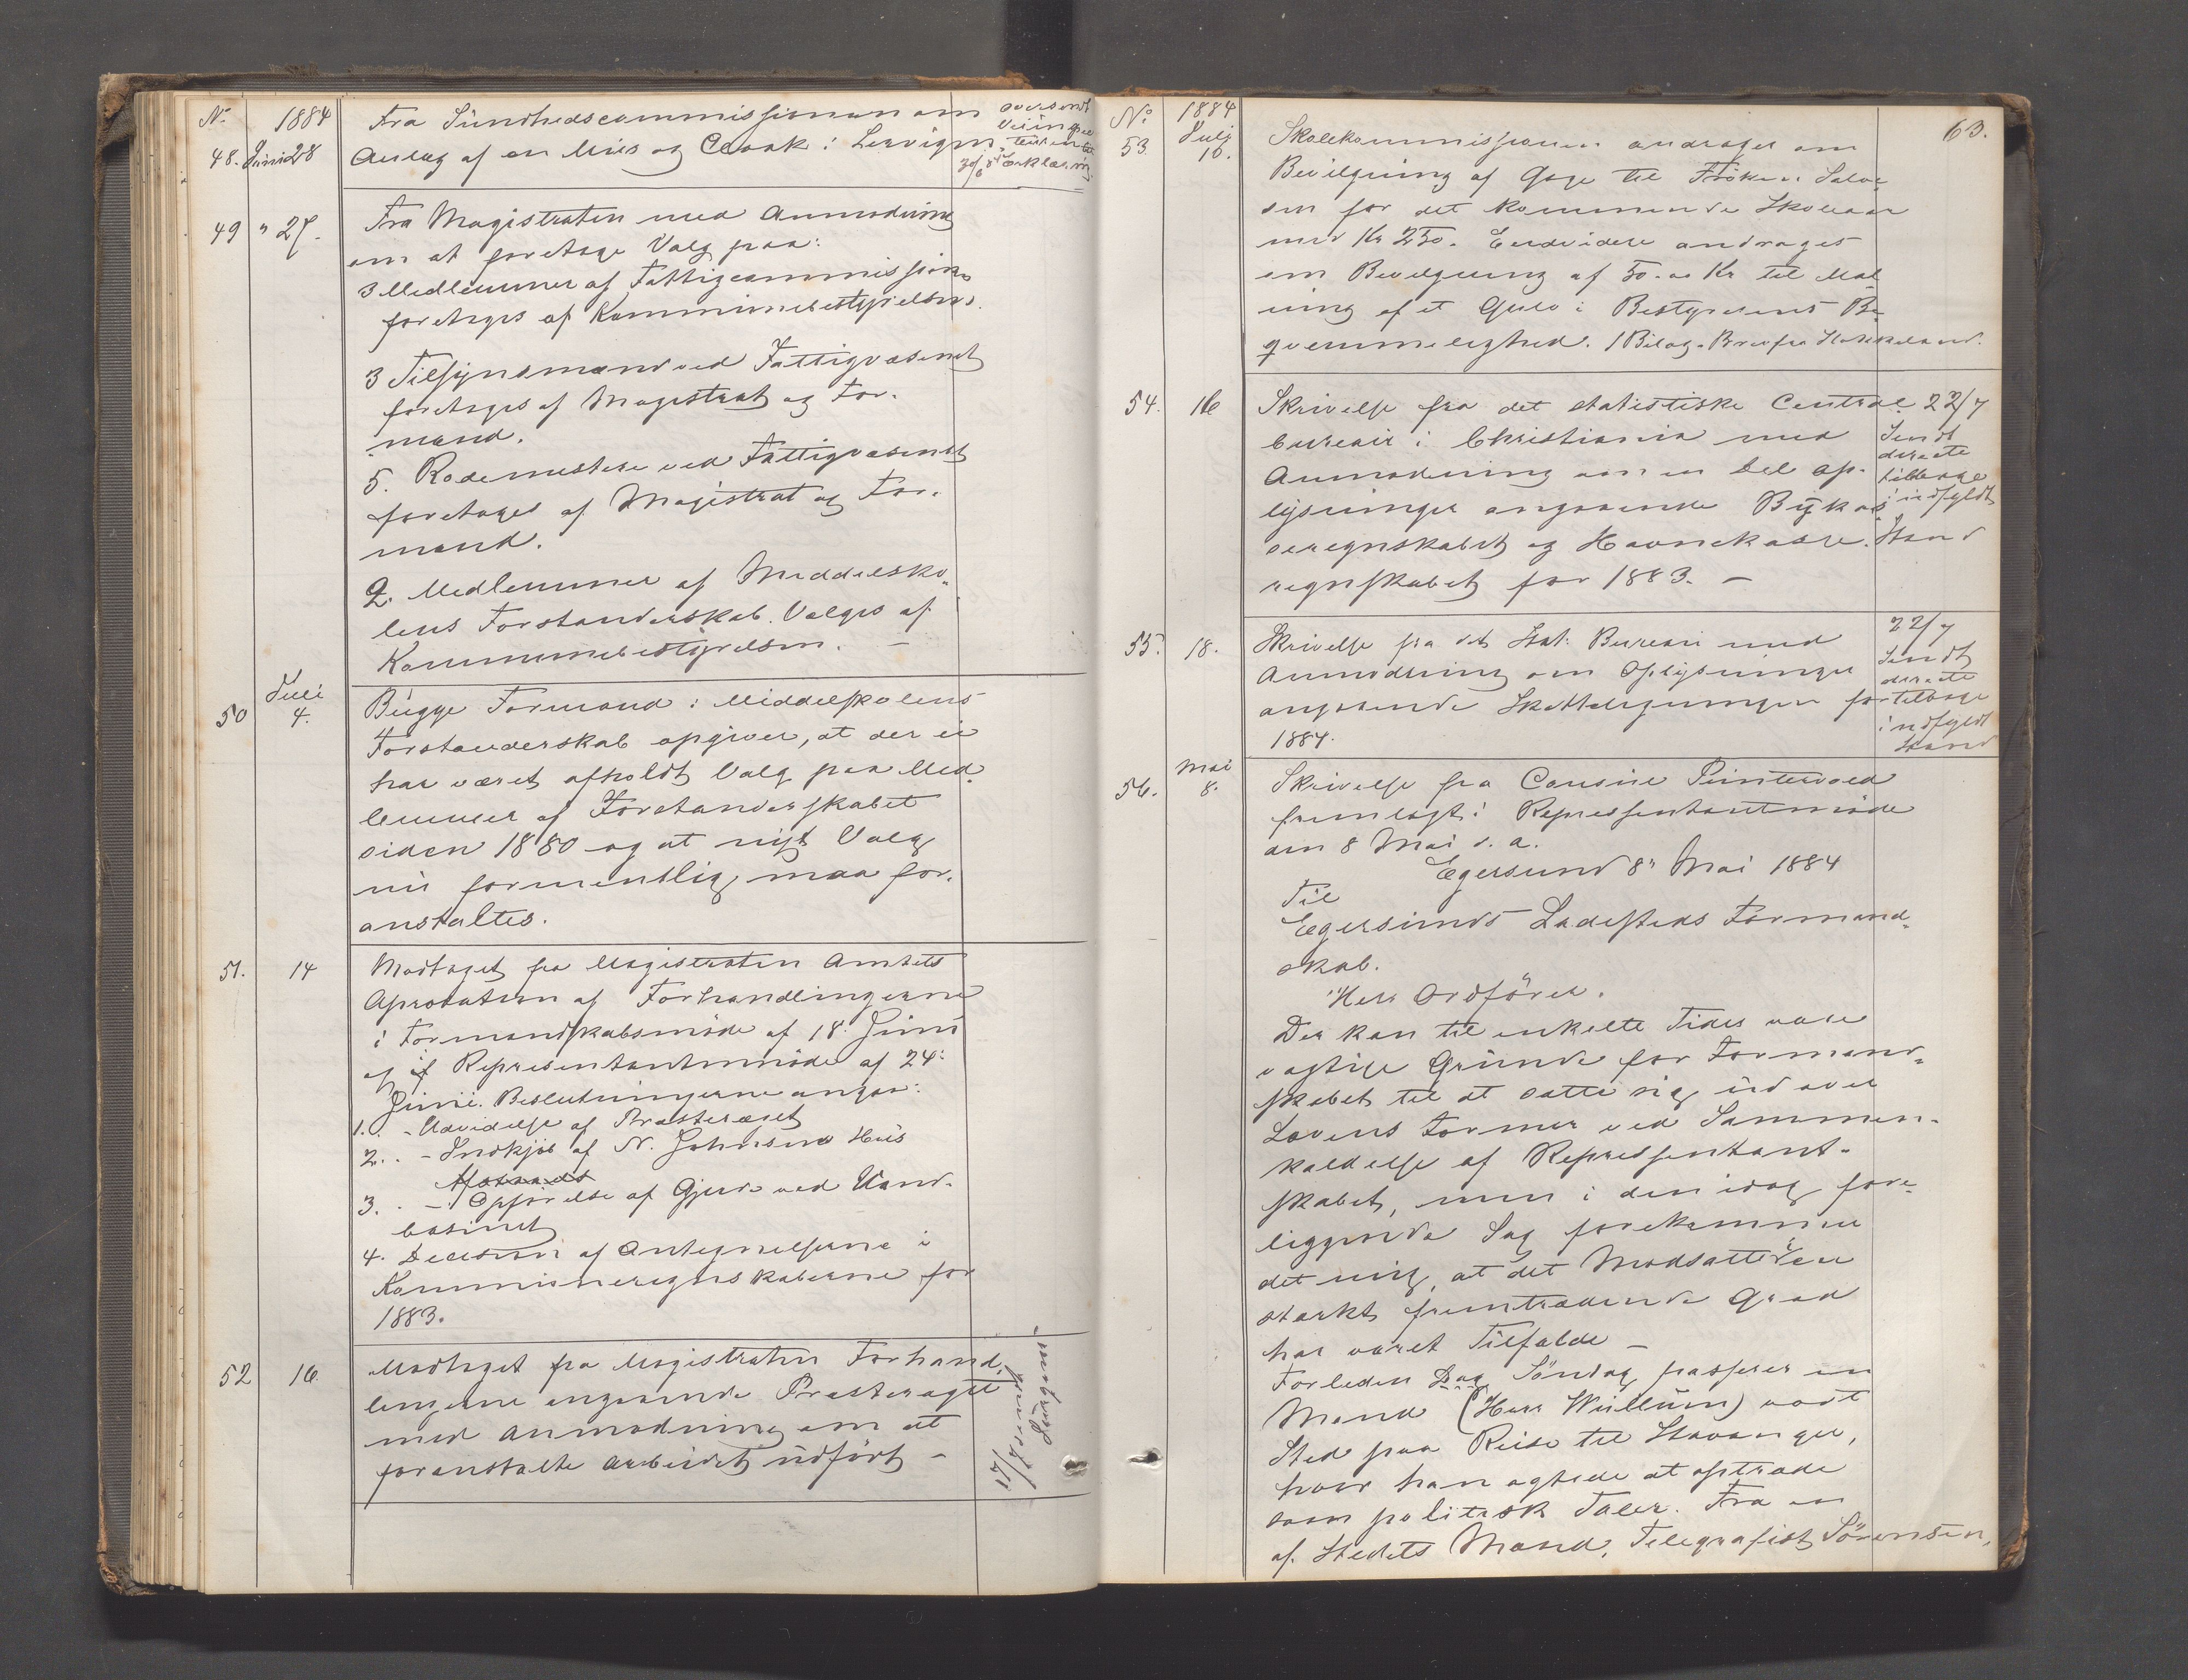 No 1884
48. Juni 28 Fra Sundhedscommissionen om
Anlæg af en Mur og Cloak i Lervigen.
oversendt
Veiinspec
teuren til
30/6 84 Erklæring
49 " 27. Fra Magistraten med Anmodning
om at foretage Valg paa:
3 Medlemmer af Fattigcommissionen
foretages af Kommunebestyrelsen.
3 Tilsynsmænd ved Fattigvæsenet
foretages af Magistrat og For-
mænd.
5. Rodemestere ved Fattigvæsenet
foretages af Magistrat og For-
mænd.
2. Medlemmer af Middelsko-
lens Forstanderskab. Vælges af
Kommunebestyrelsen. –
50 Juli 4. Bugge Formand i Middelskolens
Forstanderskab opgiver, at der ei
har været afholdt Valg paa Med-
lemmer af Forstanderskabet
siden 1880 og at nyt Valg
nu formentlig maa for-
anstaltes.
51. 14 Modtaget fra Magistraten Amtets
Aprobation af Forhandlingerne
i Formandskabsmöde af 18. Juni
og if Representantmöde af 24:
Juni. Beslutningerne angaar:
1. . - Udvidelse af Præsteræset
2. . - Indkjöb af N. Johnsens Hus
3. . - Opförelse af Gjerde ved Vand-
basinet
4. Decision af Antegnelserne i
Kommuneregnskaberne for
1883.
52 16. Modtaget fra Magistraten Forhand-
lingerne angaaende Præsteragtet
med Anmodning om at
foranstalte Arbeidet udfört –
63.
No 1884
53. Juli 10. Skolekommissionen andrager om
Bevilgning af Gage til Fröken Salve-
sen for det kommende Skoleaar
med Kr 250. Endvidere andrages
om Bevilgning af 50. Kr til Mal-
ning af et Gulv i Bestyrerens Be-
qvemmelighed. 1 Bilag. Brev fra
54. 16 Skrivelse fra det statistiske Central-
bureau i Christiania med
Anmodning om en Del op-
lysninger angaaende Bykas-
seregnskabet og Havnekasse-
regnskabet for 1883. –
22/7
Sendt
directe
tilbage
i udfyldt
Stand
55. 18. Skrivelse fra det Stat. Bureau med
Anmodning om Oplysninger
angaaende Skatteligningen for
1884.
22/7
Sendt
directe
tilbage
i udfyldt
Stand
56. Mai 8. Skrivelse fra Consul Puntervold
fremlagt i Repressentantmöde
den 8 Mai d. a.
Egersund 8" Mai 1884
Til
Egersunds Ladesteds Formand-
skab.
Herr Ordförer.
Der kan til enkelte Tider være
vægtige Grunde for Formand-
skabet til at sætte sig udover
Lovens Former ved Sammen-
kaldelse af Repressentant-
skabet, men i den idag fore-
liggende Sag forekommer
det mig, at det Modsatte i den
stærkt fremtrædende Grad
har været Tilfælde –
Forleden Dag Söndag passerer en
Mand (Herr Wullum) vort
Sted paa Reise til Stavanger,
hvor han agtede at optræde
som politisk Taler. Fra en
af Stedets Mænd, Telegrafist Sörensen,